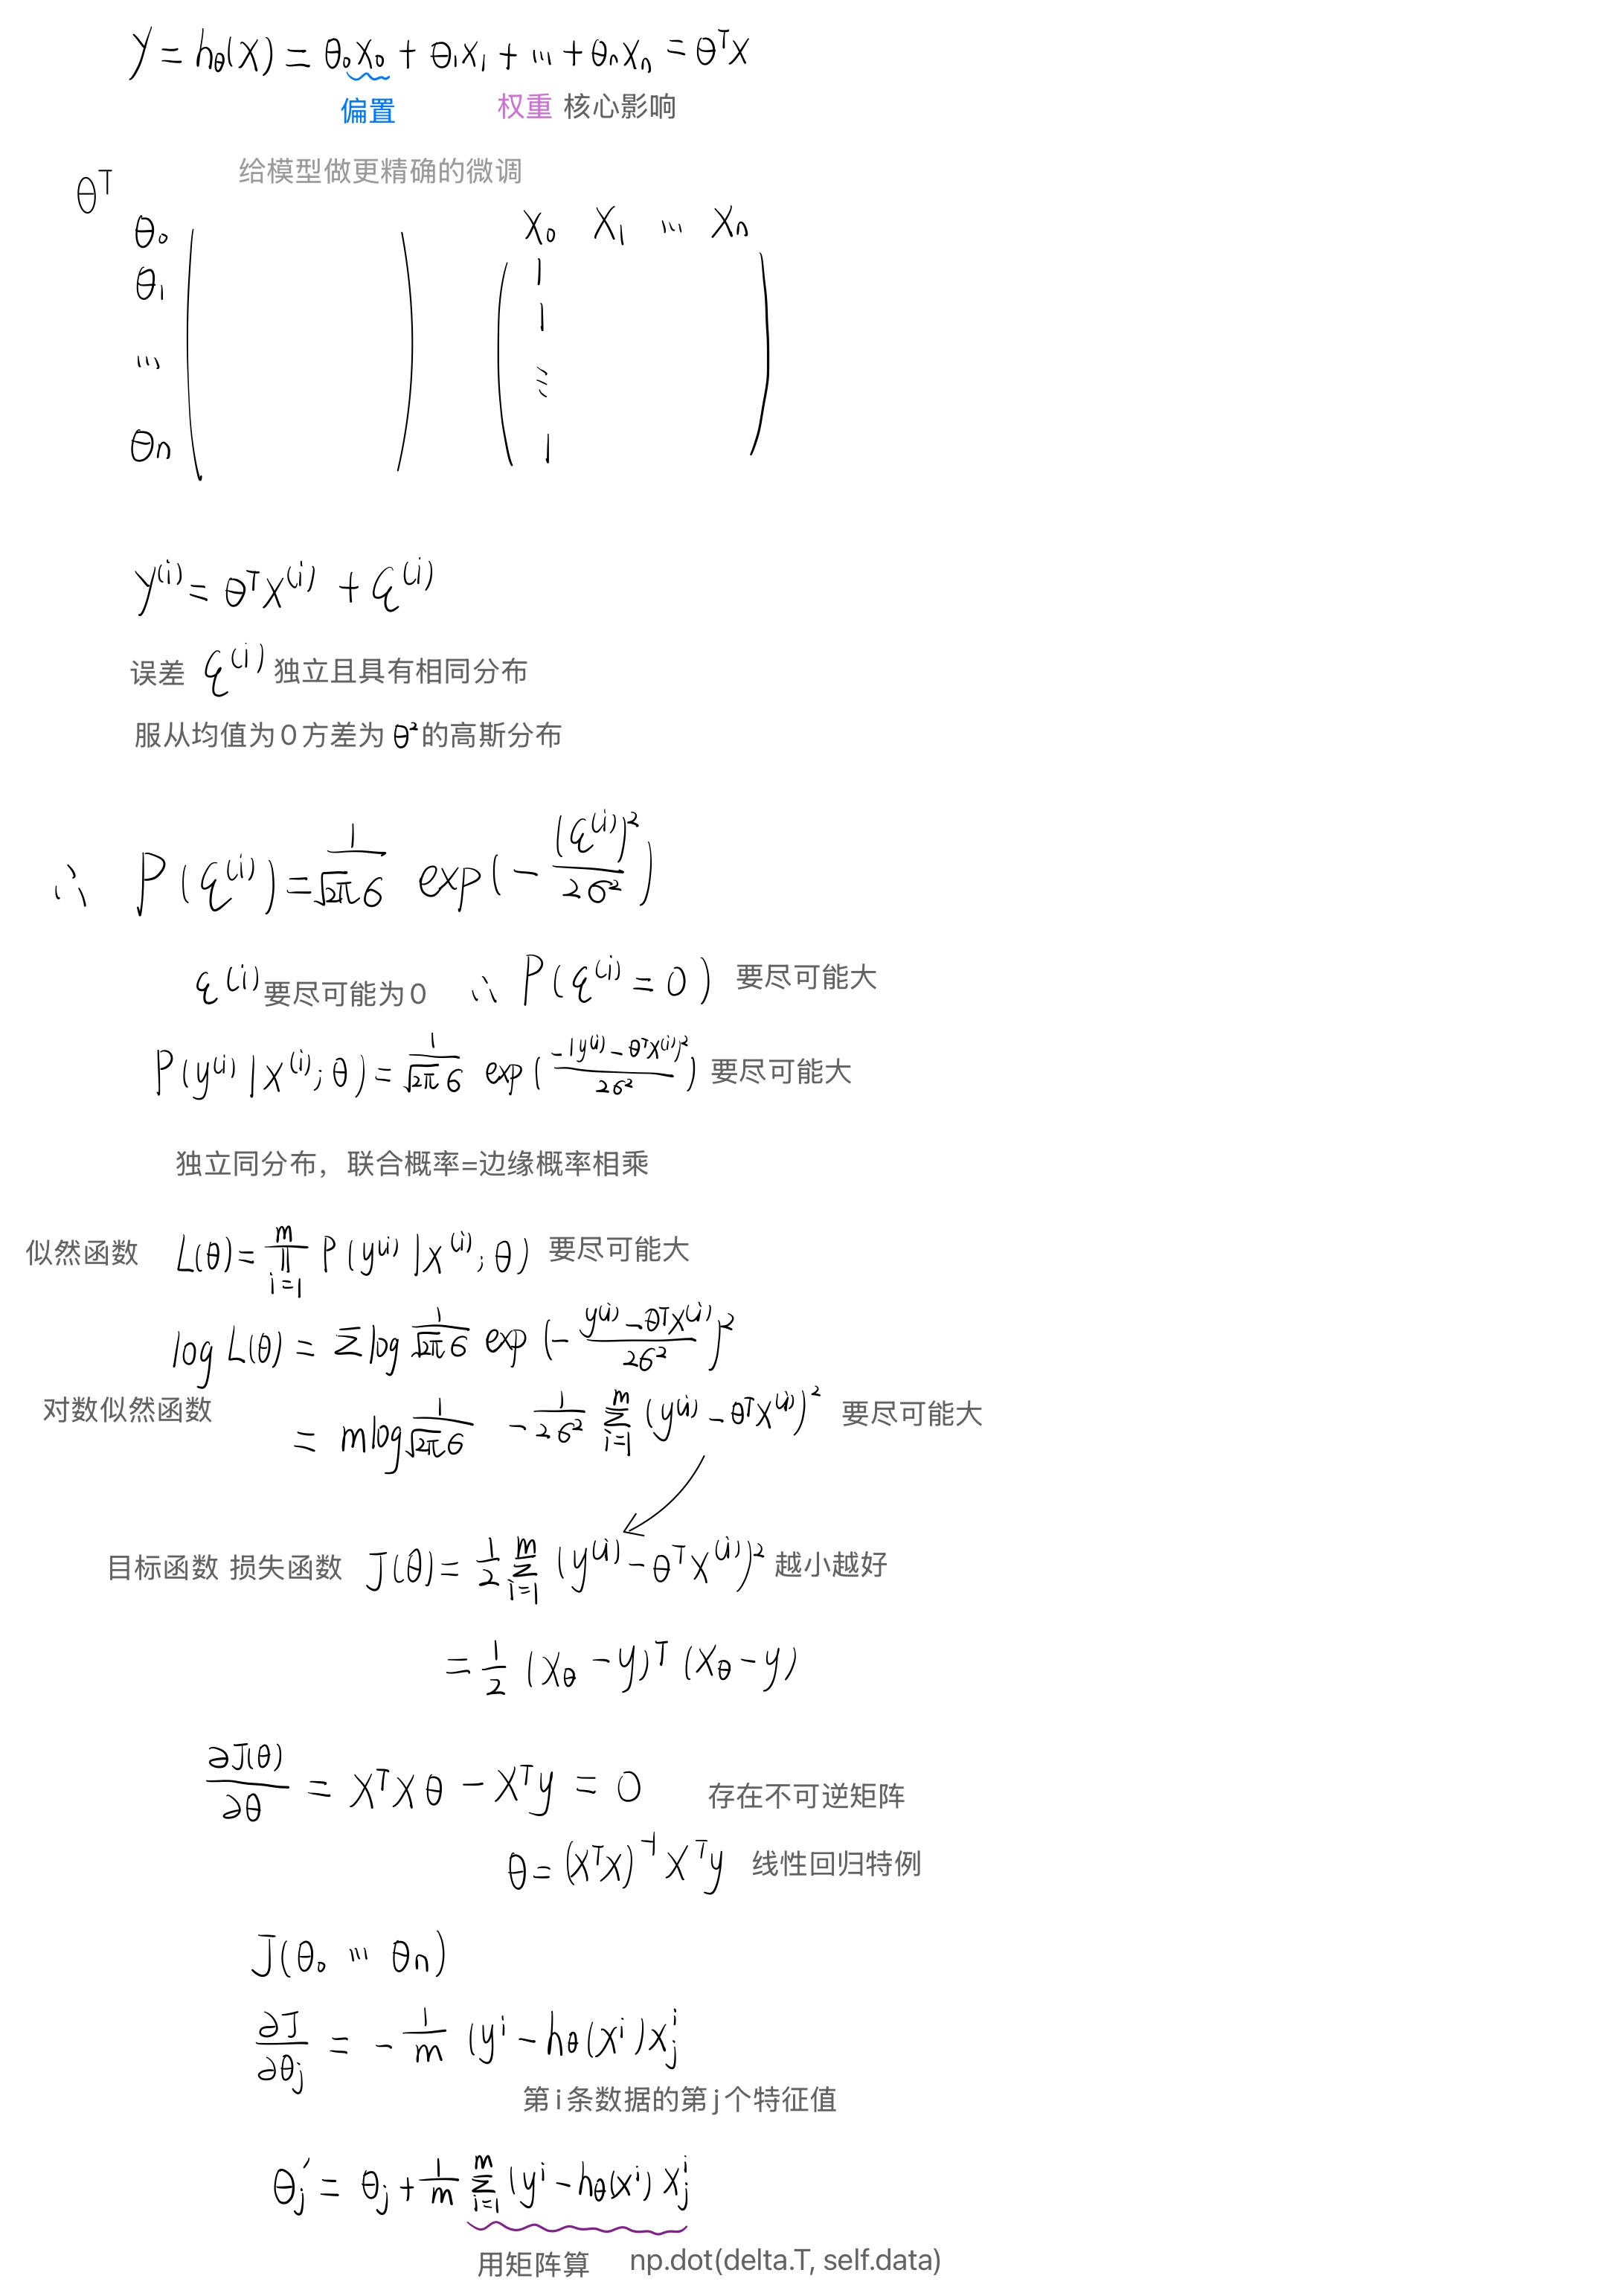 y = hθ(x) = θ₀x₀ + θ₁x₁ + ... + θₙxₙ = θᵀx
偏置 权重 核心影响
给模型做更精确的微调
θᵀ
θ₀ x₀ x₁ ... xₙ
θ₁ 1
1
... ⋮
θn 1
y⁽ⁱ⁾ = θᵀx⁽ⁱ⁾ + ε⁽ⁱ⁾
误差 ε⁽ⁱ⁾ 独立且具有相同分布
服从均值为0方差为 θ² 的高斯分布
∴ P(ε⁽ⁱ⁾) = 1/(√2π σ) exp(-(ε⁽ⁱ⁾)²/2σ²)
ε⁽ⁱ⁾ 要尽可能为0 ∴ P(ε⁽ⁱ⁾ = 0) 要尽可能大
P(y⁽ⁱ⁾|x⁽ⁱ⁾; θ) = 1/(√2π σ) exp(-(y⁽ⁱ⁾ - θᵀx⁽ⁱ⁾)²/2σ²) 要尽可能大
独立同分布，联合概率=边缘概率相乘
似然函数 L(θ) = ∏ᵢ₌₁ᵐ P(y⁽ⁱ⁾|x⁽ⁱ⁾; θ) 要尽可能大
log L(θ) = Σ log 1/(√2π σ) exp(-(y⁽ⁱ⁾ - θᵀx⁽ⁱ⁾)/2σ²)²
对数似然函数 = m log 1/(√2π σ) - 1/2σ² Σᵢ₌₁ᵐ (y⁽ⁱ⁾ - θᵀx⁽ⁱ⁾)² 要尽可能大
目标函数 损失函数 J(θ) = 1/2 Σᵢ₌₁ᵐ (y⁽ⁱ⁾ - θᵀx⁽ⁱ⁾)² 越小越好
= 1/2 (xθ - y)ᵀ (xθ - y)
∂J(θ)/∂θ = XᵀXθ - Xᵀy = 0 存在不可逆矩阵
θ = (XᵀX)⁻¹Xᵀy 线性回归特例
J(θ₀ ... θn)
∂J/∂θj = - 1/m (yⁱ - hθ(xⁱ)xⱼⁱ
第i条数据的第j个特征值
θj′ = θj + 1/m Σᵢ₌₁ᵐ (yⁱ - hθ(xⁱ) xⱼⁱ
用矩阵算 np.dot(delta.T, self.data)